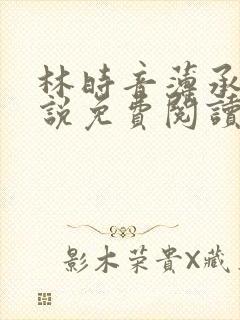 林時音薄承
說免費閱讀
影木荣貴X藏